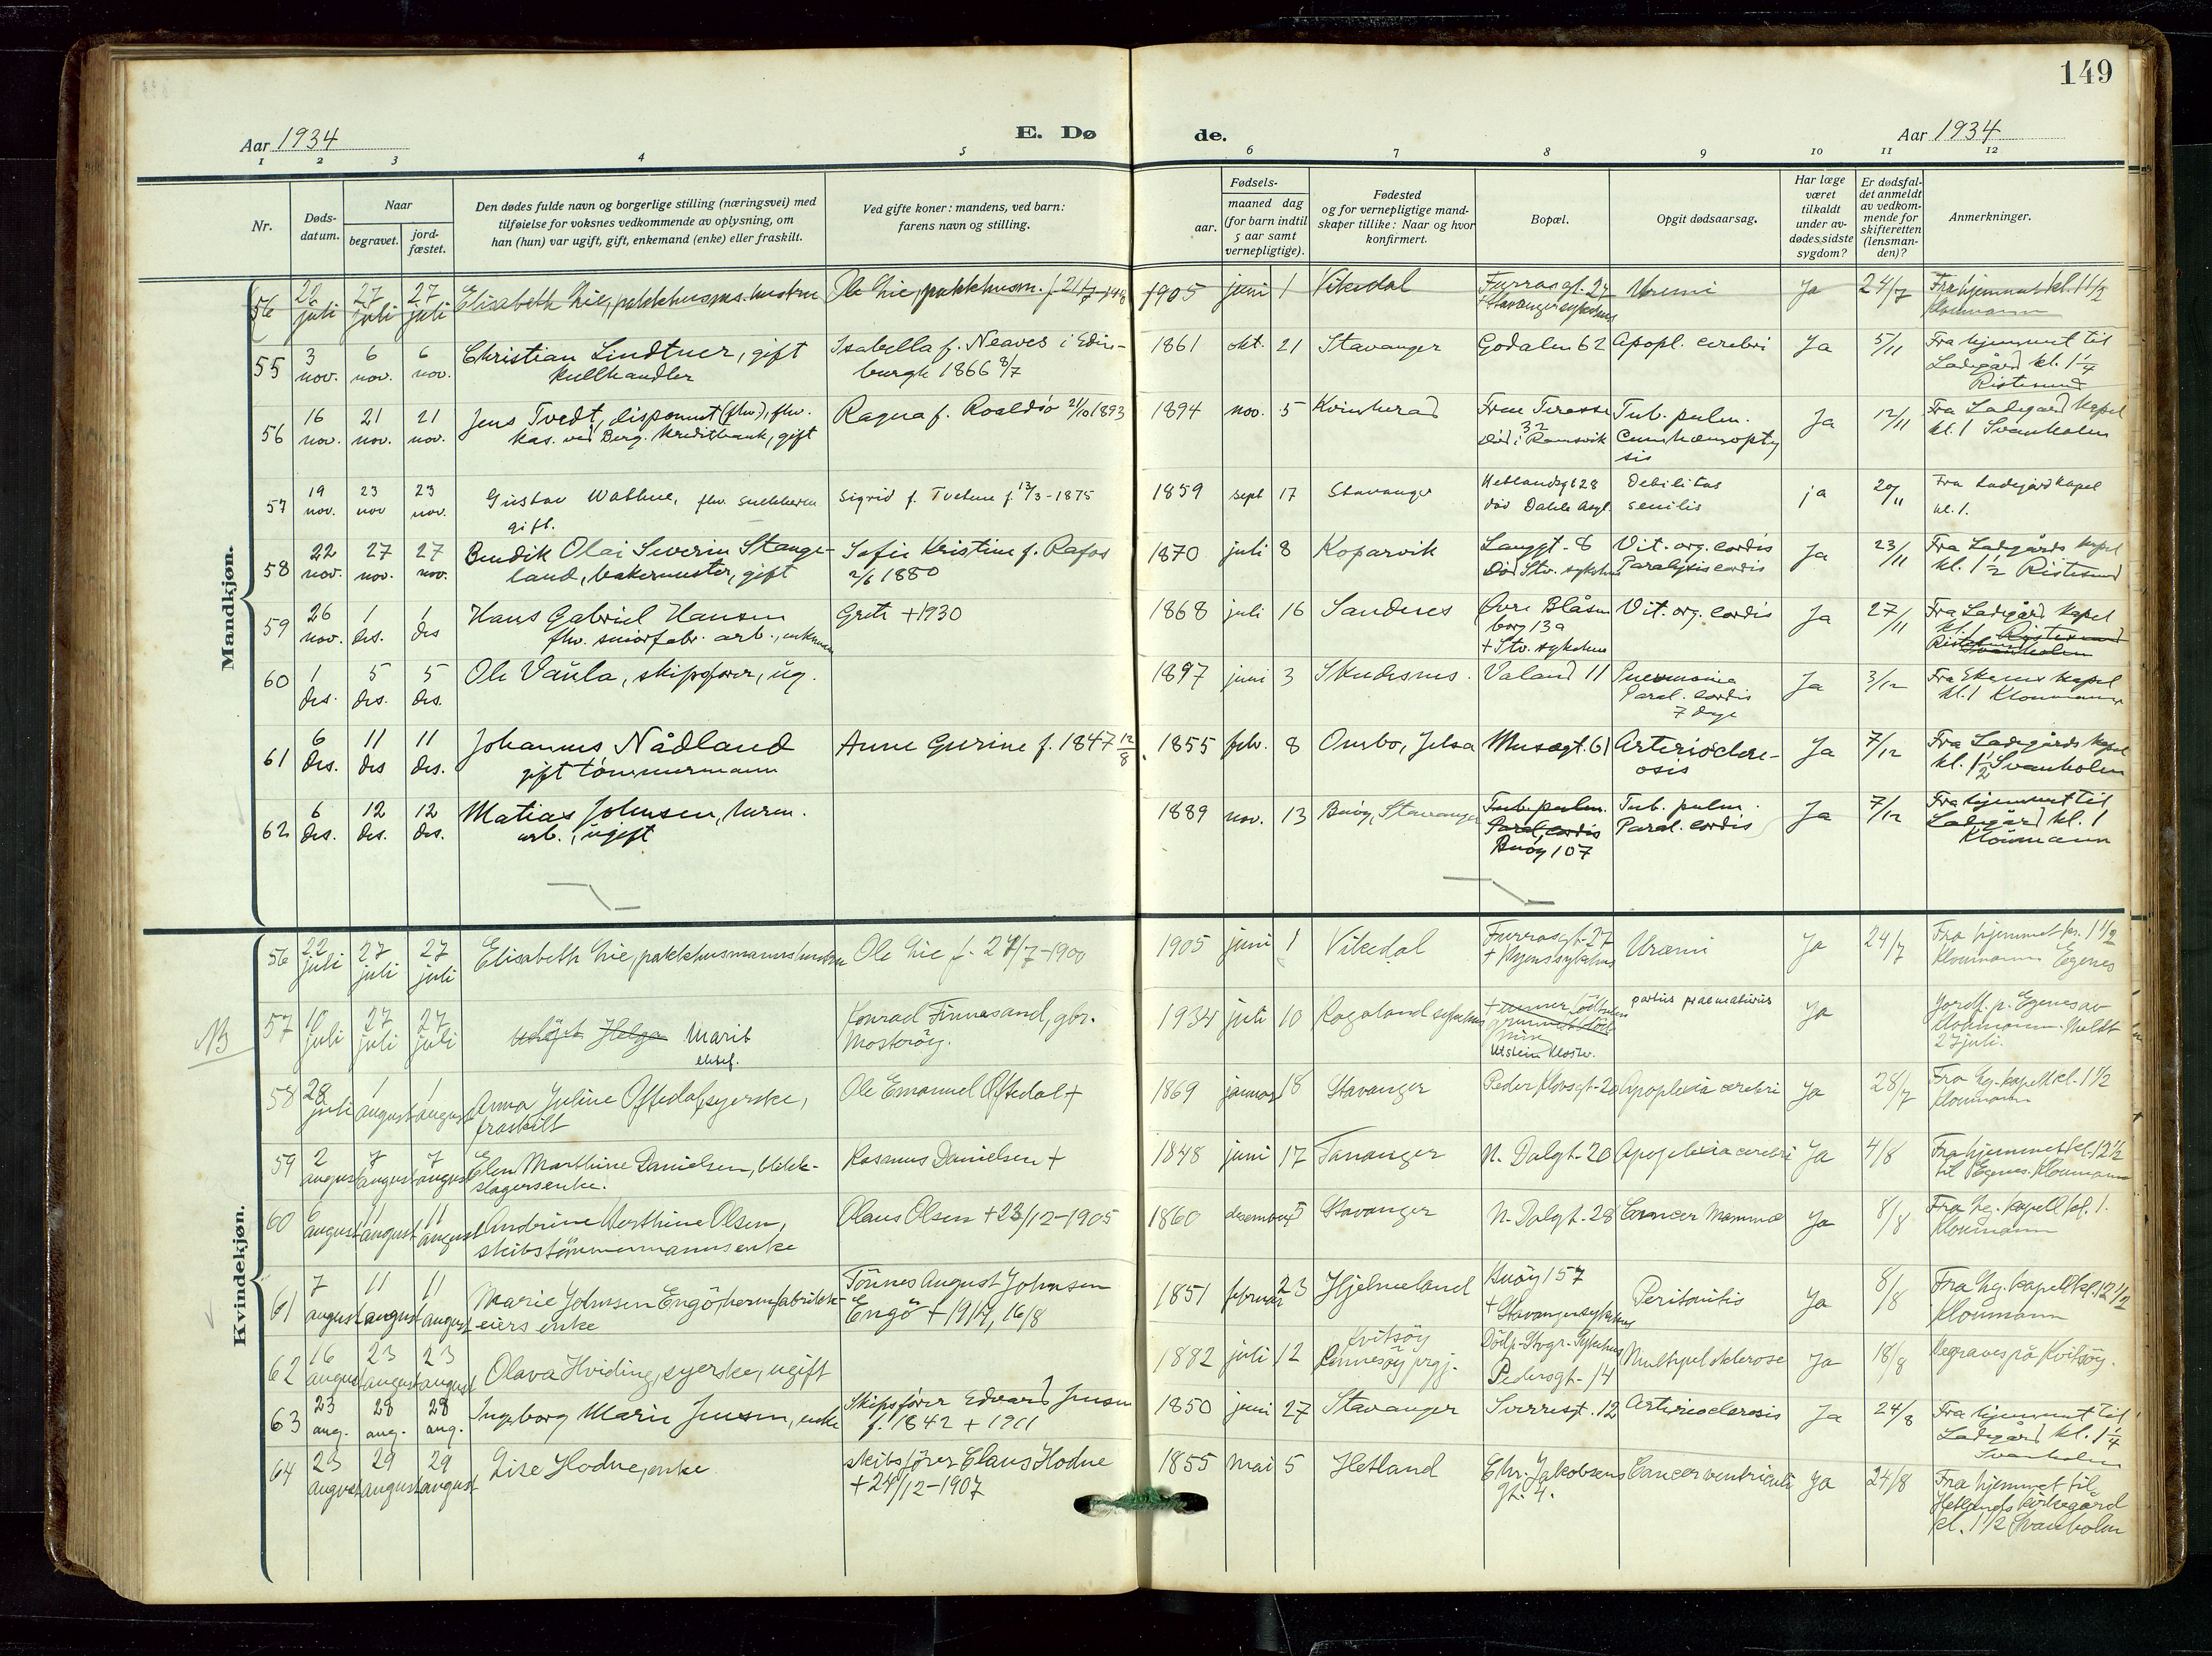 149
Aar 1934
E. Dø de.
Aar 1934
1 2 3 4 5 6 7 8 9 10 11 12
Nr.
Døds-
datum.
Naar
begravet.
jord-
fæstet.
Den dødes fulde navn og borgerlige stilling (næringsvei) med
tilføielse for voksnes vedkommende av oplysning, om
han (hun) var ugift, gift, enkemand (enke) eller fraskilt.
Ved gifte koner: mandens, ved barn:
farens navn og stilling.
Fødsels-
aar.
maaned dag
(for barn indtil
5 aar samt
vernepligtige).
Fødested
og for vernepligtige mand-
skaper tillike: Naar og hvor
konfirmert.
Bopæl.
Opgit dødsaarsag.
Har læge
været
tilkaldt
under av-
dødes sidste
sygdom?
Er dødsfal-
det anmeldt
av vedkom-
mende for
skifteretten
(lensman-
den)?
Anmerkninger.
Mandkjøn.
56 22 juli 27 juli 27 juli Elisabeth Lie, pakkhusms. hustru Ole Lie, pakkhusm. 1905 juni 1 Vikedal Furrasgt. 27 + Stavanger sykehus Uremi Ja 24/7 Fra hjemmet kl. 1 1/2 Kloumann
55 3 nov. 6 nov. 6 nov. Christian Lindtner, gift kullhandler Isabella f. Neaves i Edin-burgh 1866 8/7 1861 okt. 21 Stavanger Godalen 62 Apopl. cerebri Ja 5/11 Fra hjemmet til Ladegård kl. 1 1/4 Ristesund
56 16 nov. 21 nov. 21 nov. Jens Tvedt, disponent (fhv.), fhv. kas. ved Berg. Kreditbank, gift Ragna f. Roaldsö 21/10 1893 1894 nov. 5 Kvinherad Frue Terasse 32 Död i Ramsvik Tub. pulm. cum hæmoptysis Ja 17/11 Fra Ladegård kapel kl. 1 Svanholm
57 19 nov. 23 nov 23 nov. Gustav Wathne, fhv. snekkerm gift. Sigrid f. Tvetene f. 13/3-1875 1859 sept 17 Stavanger Hetlandsgt 28 död Dahle Asyl. Debilitas senilis ja 20/11 Fra Ladegård kapel kl. 1.
58 22 nov. 27 nov. 27 nov. Bendik Olai Severin Stange-land, bakermester, gift Sofie Kristine f. Rafos 2/6 1880 1870 juli 8 Koparvik Langgt. 8 Död Stv. sykehus Vit. org. cordis Paralysis cordis Ja 23/11 Fra Ladegårds kapel kl. 1 1/2 Ristesund
59 26 nov. 1 des. 1 des Hans Gabriel Hansen fhv. smörfabr. arb., enkem Grete + 1930 1868 juli 16 Sandnes Övre Blåsen borg 13a + Stv. sykehus Vit. org. cordis Ja 27/11 Fra Ladegård kapel kl. 1 Ristesund Svanholm
60 1 des. 5 des. 5 des. Ole Vaula, skipsfører, ug. 1897 juni 3 Skudesnes. Valand 11 Pneumonia Paral. cordis 7 dage Ja 3/12 Fra Ekenes kapel kl. 1 Kloumann
61 6 des. 11 des 11 des. Johannes Nådland gift tömmermann Anne Gurine f. 1847 12/8 1855 feb. 8 Ombo, Jelsa Musegt. 61 Arterioscler-osis Ja 7/12 Fra Ladegårds kapel kl. 1 1/2 Svanholm
62 6 des. 12 des. 12 des. Matias Johnsen, herm. arb., ugift 1889 nov. 13 Buöy, Stavanger Tub. pulm. Paral. cordis Buöy 107 Tub. pulm. Paral. cordis Ja 7/12 Fra hjemmet til Ladegård kl. 1 Kloumann
Kvindekjøn.
56 22 juli 27 juli 27 juli Elisabeth Lie, pakkhusmannshustru Ole Lie f. 27/7-1900 1905 juni 1 Vikedal Furrasgt. 27 Uræmi Ja 24/7 Fra hjemmet kl. 1 1/2 Kloumann Egenes
NB
57 10 juli 27 juli 27 juli udöpt Helga Marit ektef. Konrad Finnesand, gbr. Mosteröy. 1934 juli 10 Rogaland sykehus Utstein Kloster. partus praematurus Ja Jordf. p. Egenes av Kloumann. Meldt 27 juli.
58 28 juli 1 august 1 august Anna Juline Oftedal, syerske, fraskilt Ole Emanuel Oftedal + 1869 januar 18 Stavanger Peder Klovsgt-20 Apoplexia cerebri Ja 28/7 Fra Lg. kapell kl. 1 1/2 Kloumann
59 2 august 7 august 7 august Elen Marthine Danielsen, blikk-slagersenke. Rasmus Danielsen + 1848 juni 17 Tananger N. Dalgt-20 Apoplexia cerebri Ja 4/8 Fra hjemmet kl. 12 1/2 til Egenes. Kloumann
60 6 august 11 august 11 august Andrine Berthine Olsen, skibstömmermannsenke Olaus Olsen + 23/12-1905 1860 desember 5 Stavanger N. Dalgt-28 Cancer Mammæ Ja 8/8 Fra Lg. kapell kl. 1. Kloumann
61 7 august 11 august 11 august Marie Johnsen Engö, hermfabrikk-eiers enke Tönnes August Johnsen Engö + 1917, 16/8 1851 februar 23 Hjelmeland Buöy 157 + Stavanger sykehus Peritonitis Ja 8/8 Fra Lg. kapell kl. 12 1/2 Kloumann
62 16 august 23 august 23 august Olava Hviding, syerske, ugift 1882 juli 12 Kvitsöy Rennesöy prgj. Död p. Stvgr. Sykehus Pedersgt-14 Multipel sklerose Ja 18/8 Begraves på Kvitsöy.
63 23 aug. 28 aug. 28 aug. Ingeborg Marie Jensen, enke Skipsförer Edvard Jensen f. 1842 + 1911 1850 juni 27 Stavanger Sverresgt. 12 Arteriosclerosis Ja 24/8 Fra hjemmet til Ladegård kl. 1 1/4 Svanholm
64 23 august 29 august 29 august Lise Hodne, enke skibsförer Claus Hodne + 24/12-1907 1855 mai 5 Hetland Chr. Jakobsens gt. 4. Cancer ventriculi Ja 24/8 Fra hjemmet til Hetlands kirkegård kl. 1 1/2 Svanholm